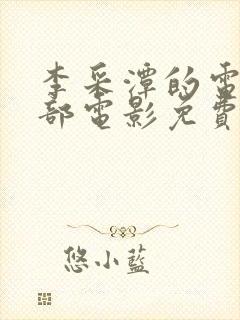 李采潭的電
部電影免費
悠小藍